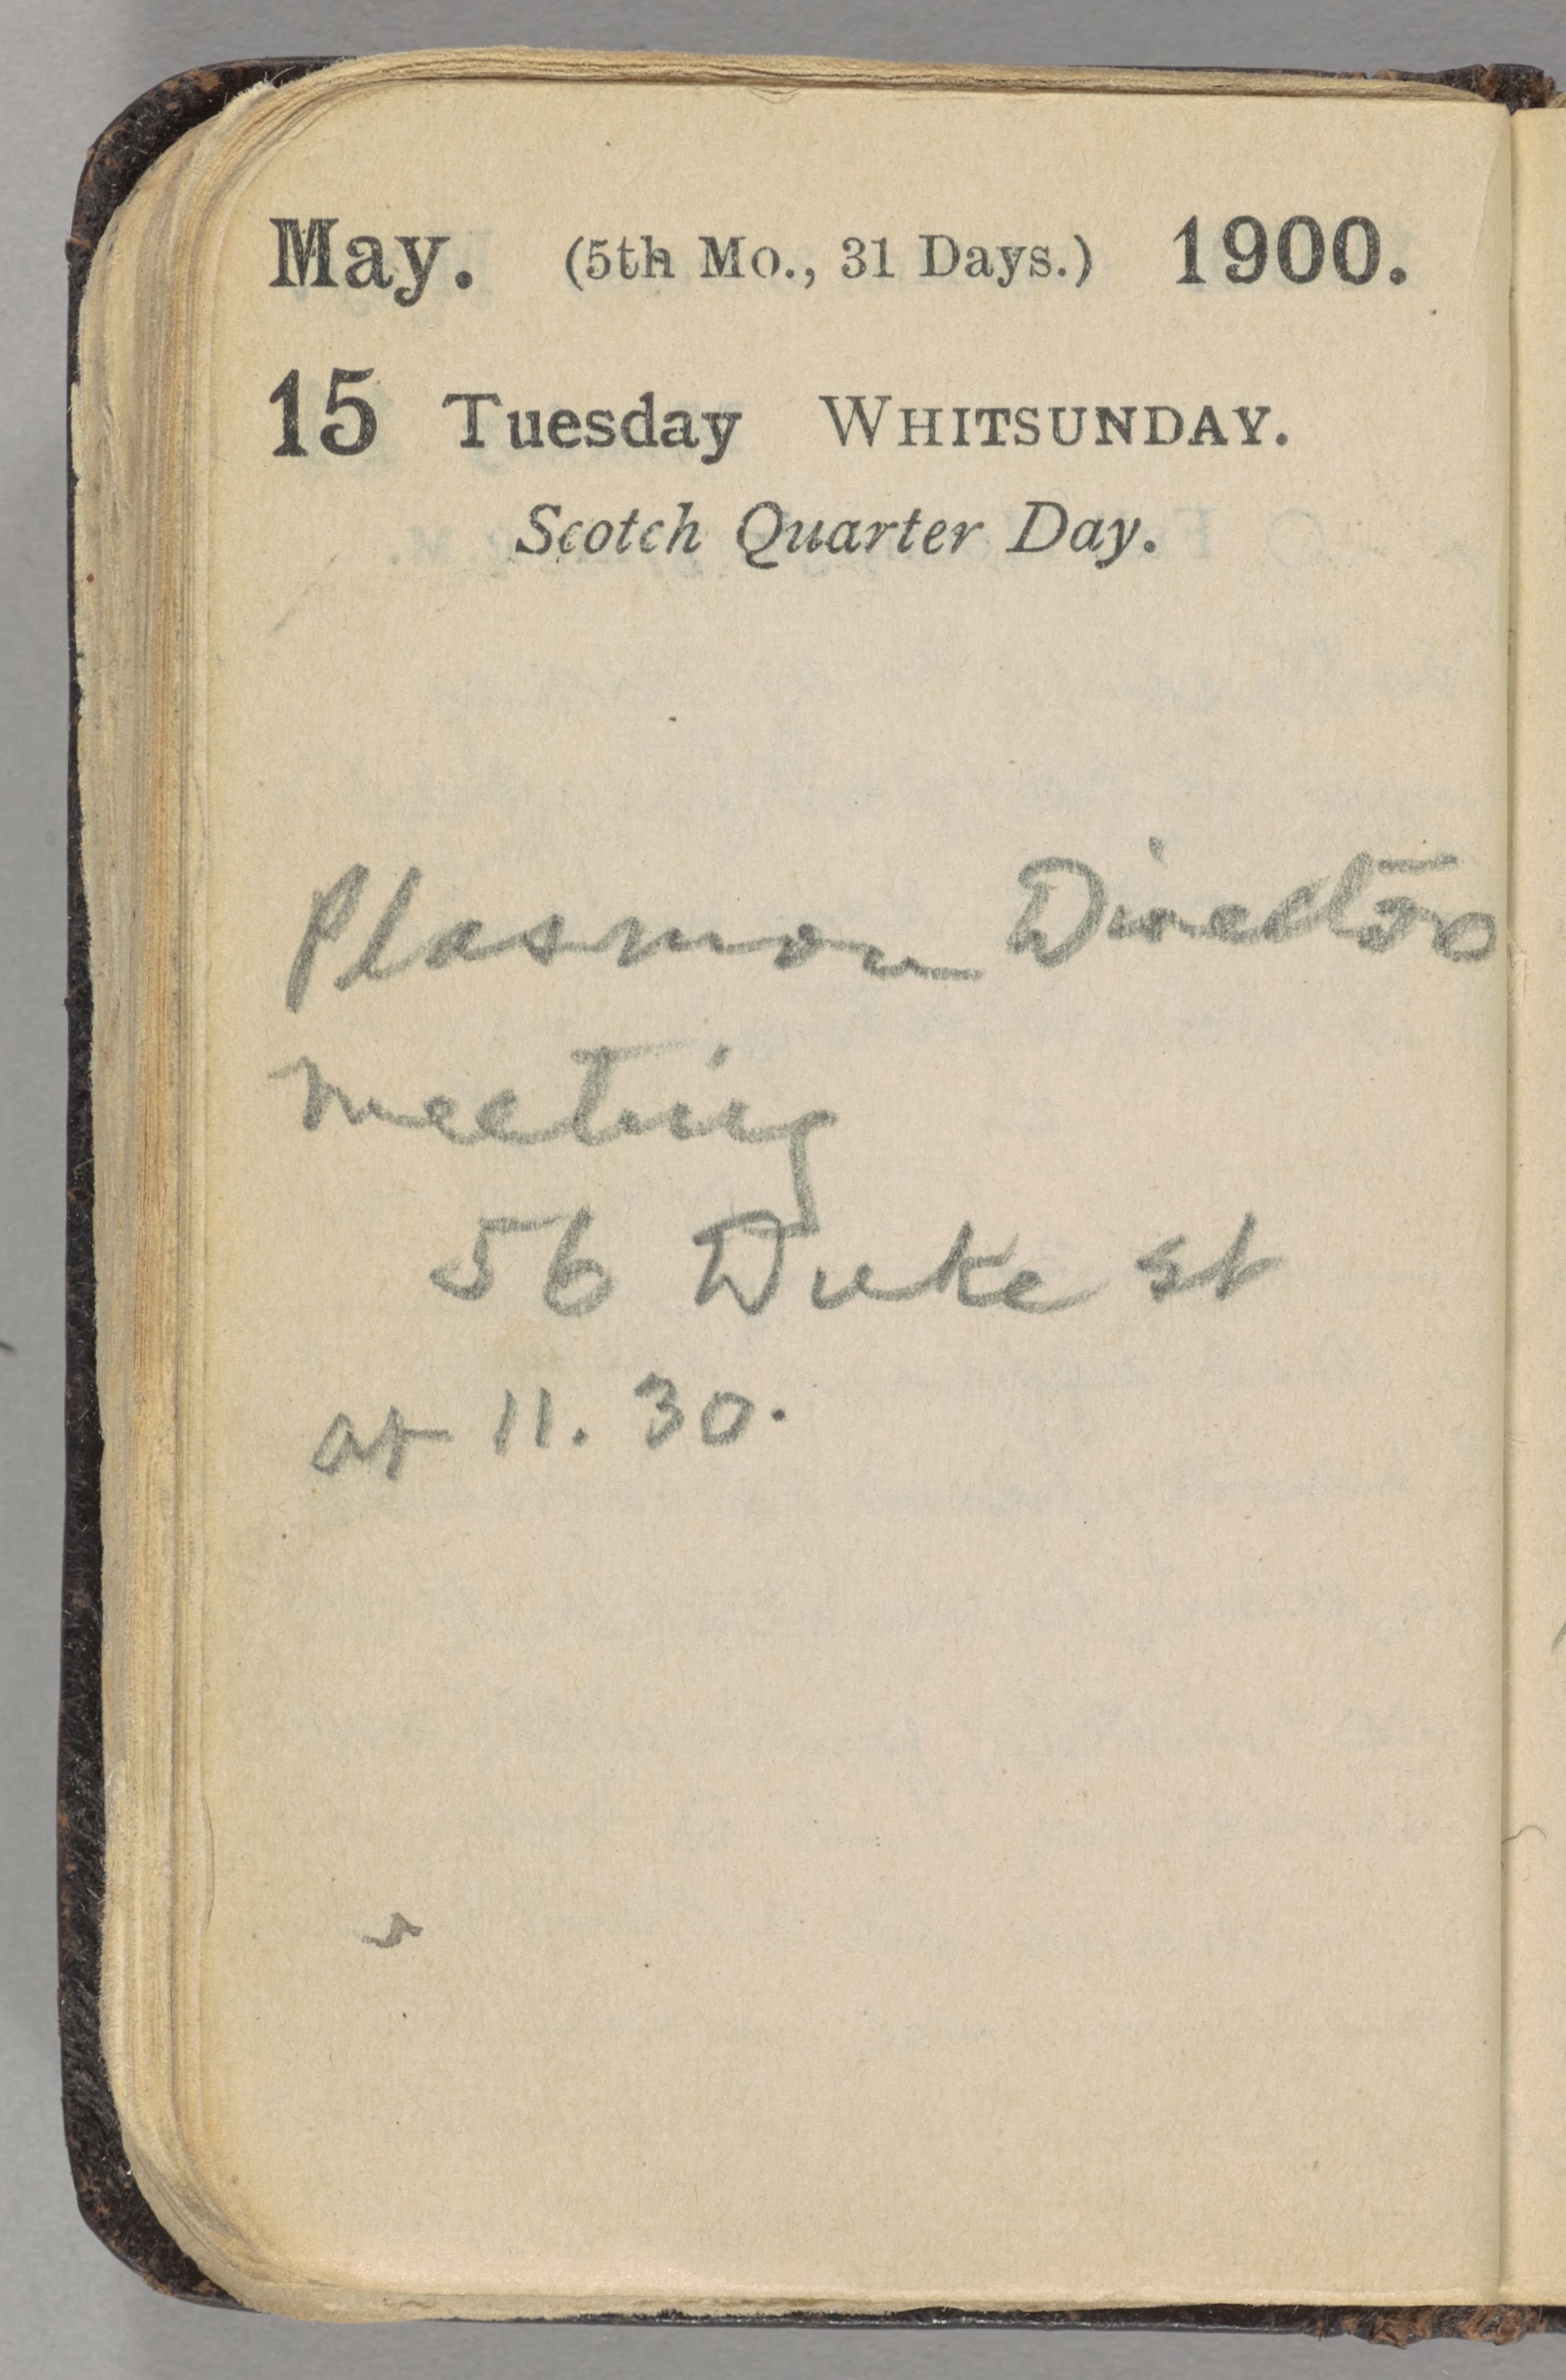 May. (5th Mo., 31 Days.) 1900.
15 Tuesday WHITSUNDAY.
Scotch Quarter Day.
Plasmon Directors
meeting
56 Duke st
at 11. 30.